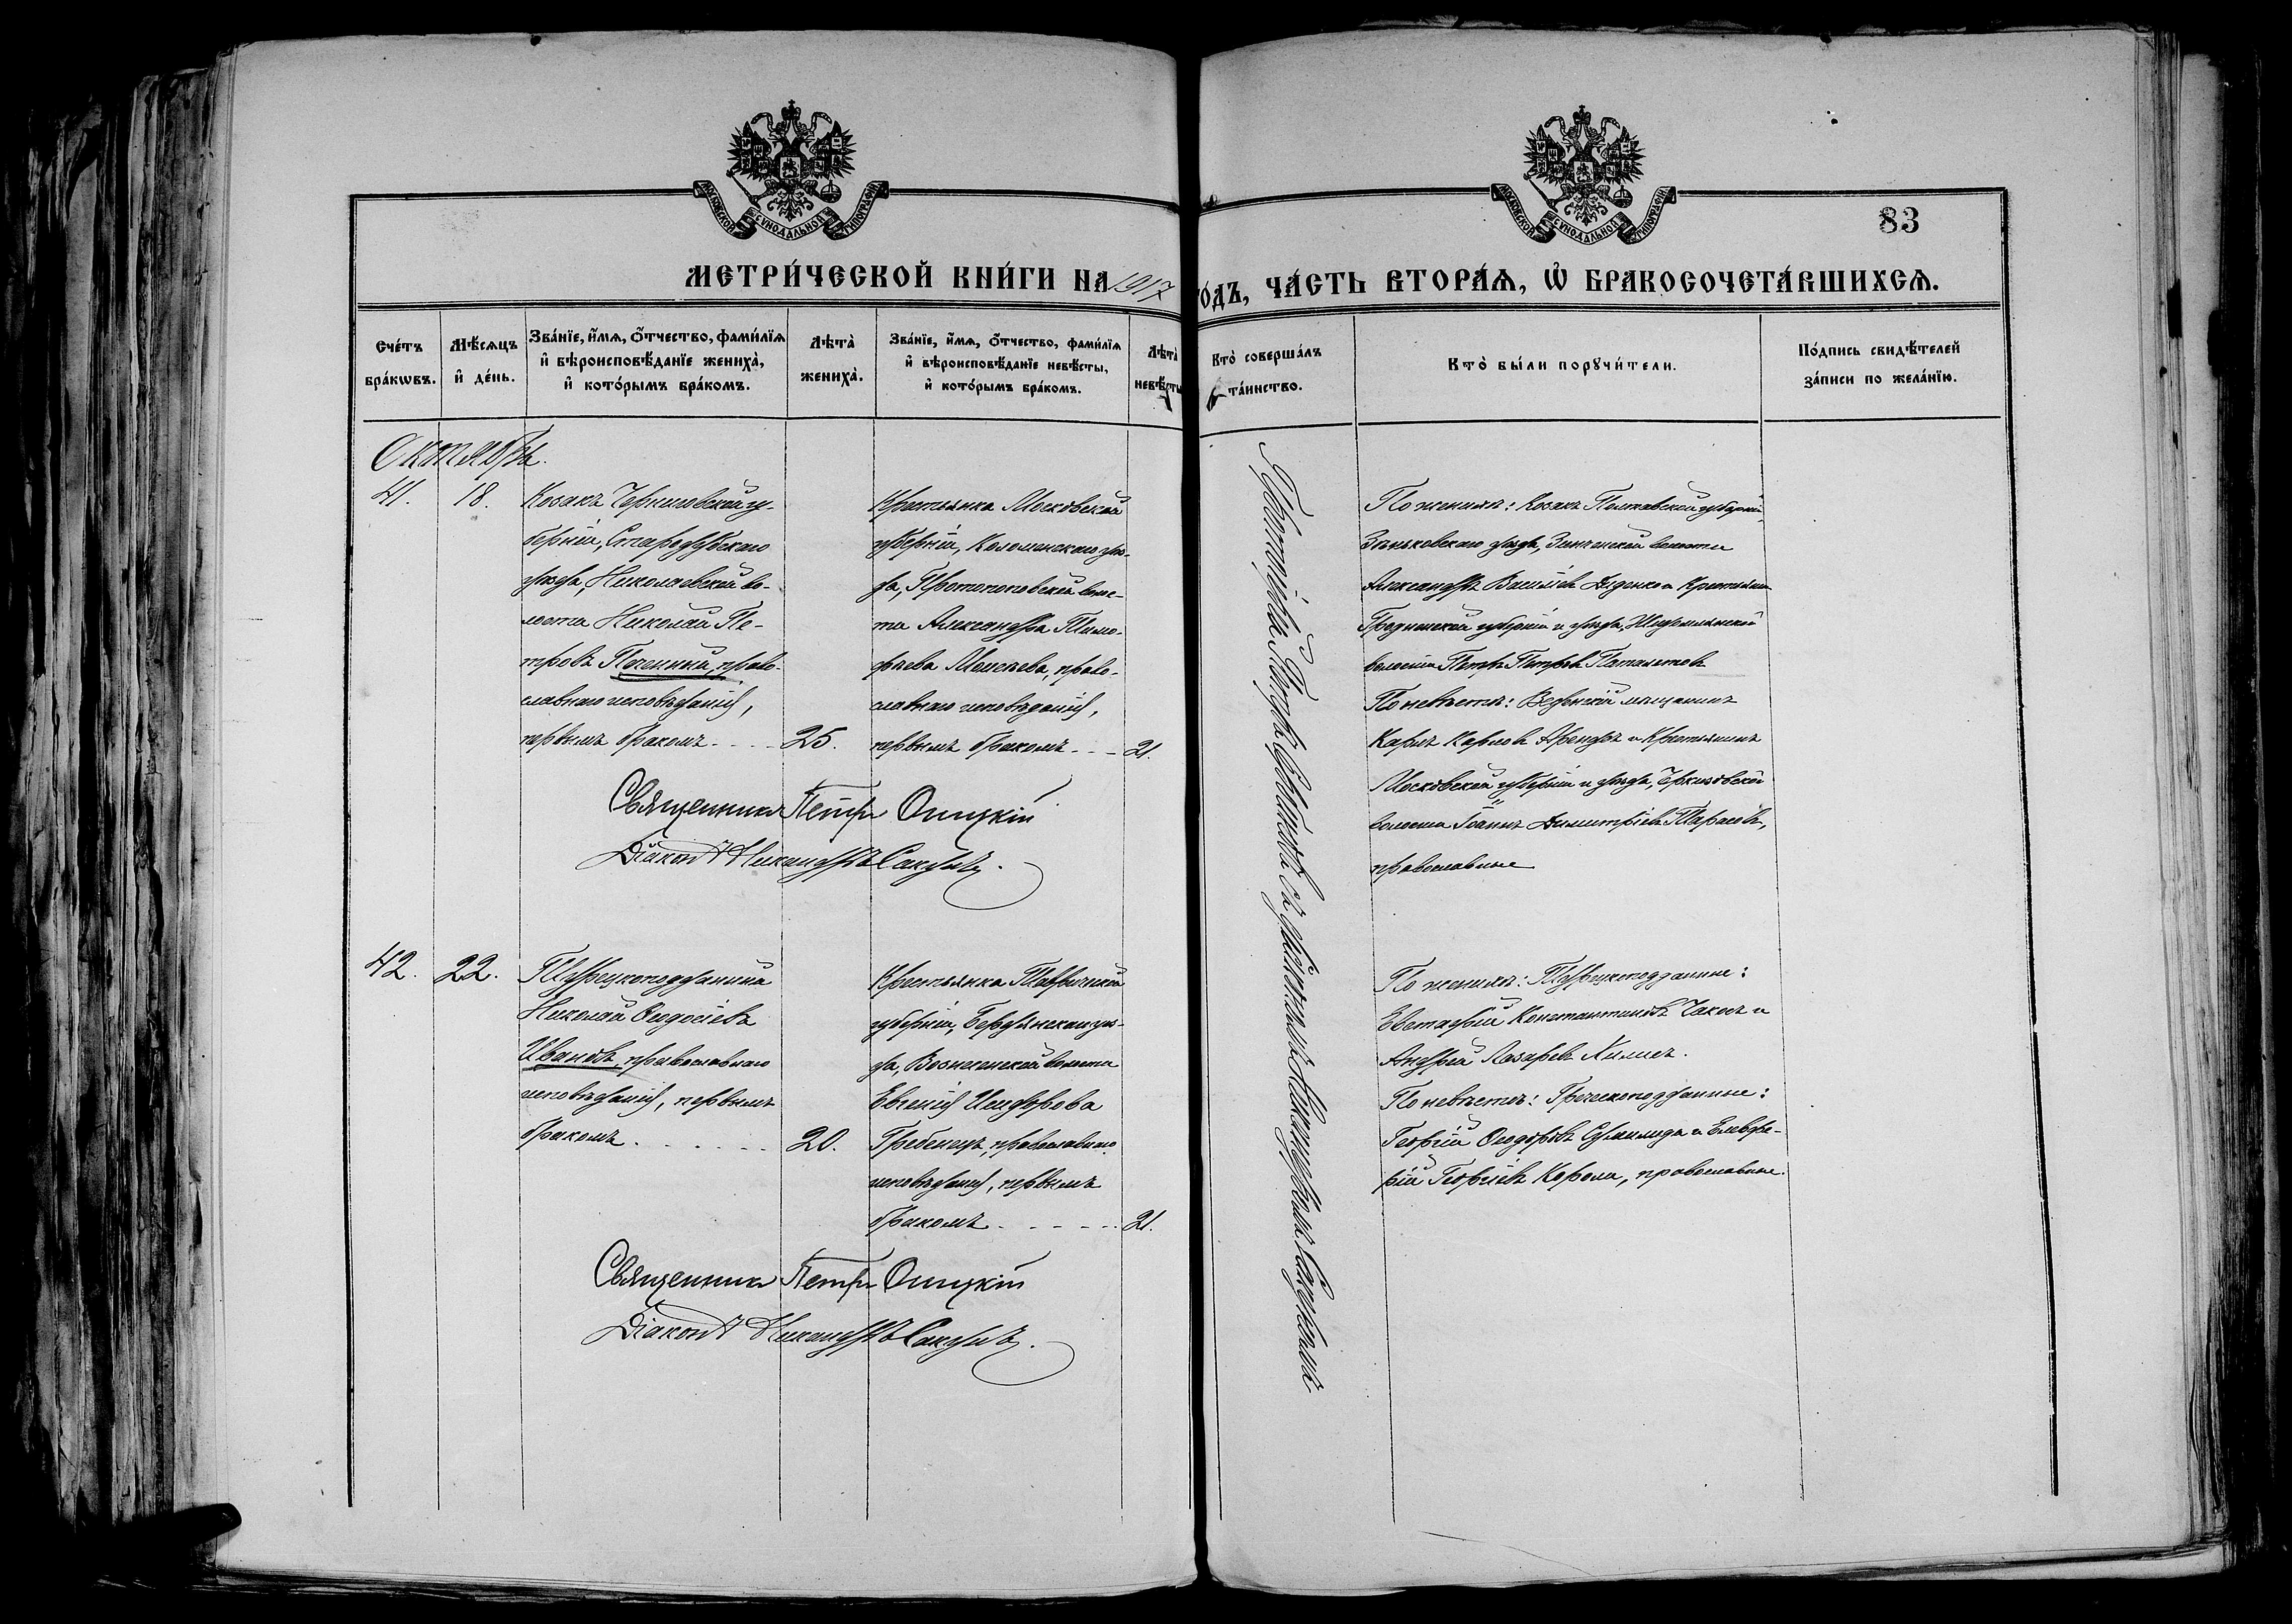 МОСКОВСКОЙ СУНОДАЛЬНОЙ ТИПОГРАФІИ
МОСКОВСКОЙ СУНОДАЛЬНОЙ ТИПОГРАФІИ
83
МЕТРИ́ЧЕСКОЙ КНИ́ГИ НА 1917 ГО́ДЪ, ЧА́СТЬ ВТОРА́Ѧ, Ѡ҆ БРАКОСОЧЕТА́ВШИХСѦ.
Сче́тъ
бра́кѡвъ.
Мѣ́сѧцъ
и҆ де́нь.
Зва́нїе, и҆́мѧ, ѻ҆́тчество, фами́лїѧ
и҆ вѣроисповѣ́данїе жениха̀,
и҆ кото́рымъ бра́комъ.
Лѣта̀
жениха̀.
Зва́нїе, и҆́мѧ, ѻ҆́тчество, фами́лїѧ
и҆ вѣроисповѣ́данїе невѣ́сты,
и҆ кото́рымъ бра́комъ.
Лѣта̀
невѣ́сты
Кто̀ соверша́лъ
та́инство.
Кто̀ бы́ли порꙋчи́тели.
По́дпись свидѣ́телей
за́писи по жела́нїю.
Октябрь.
41. 18.
Козакъ Черниговской гу-
берніи, Стародубскаго
уѣзда, Николаевской во-
лости Николай Пе-
тровъ, право-
славнаго исповѣданія,
первымъ бракомъ . . . 25.
Крестьянка Московской
губерніи, Коломенскаго уѣз-
да, Протопоповской воло-
сти Александра Тимо-
феева Моисеева, право-
славнаго исповѣданія,
первымъ бракомъ . . . 21.
Священникъ Петръ Осицкій
Діаконъ Никандръ
По женихѣ: Козакъ Полтавской губерніи,
Зѣньковскаго уѣзда, волости
Александръ Васильевъ Диденко и Крестьянинъ
Гродненской губерніи и уѣзда,
волости Петръ Петровъ
По невѣстѣ: мѣщанинъ
Карлъ Карловъ Арендтъ и Крестьянинъ
Московской губерніи и уѣзда, Черкизовской
волости Іоаннъ Димитріевъ Тарасовъ,
православные
42. 22.
Турецкоподданный
Николай Ѳеодосіевъ
Ивановъ, православнаго
исповѣданія, первымъ
бракомъ . . . . . . 20.
Крестьянка Таврической
губерніи, Бердянскаго уѣз-
да, Вознесенской волости
Евгенія Исидорова
Гребенецъ, православнаго
исповѣданія, первымъ
бракомъ . . . . . . 21.
Священникъ Петръ Осицкій
Діаконъ Никандръ
По женихѣ: Турецкоподданные:
Евстафій Константиновъ и
Андрей Лазаревъ
По невѣстѣ: Греческоподданные:
Георгій Ѳеодоровъ и Елевфе-
рій Георгіевъ Корола, православные.